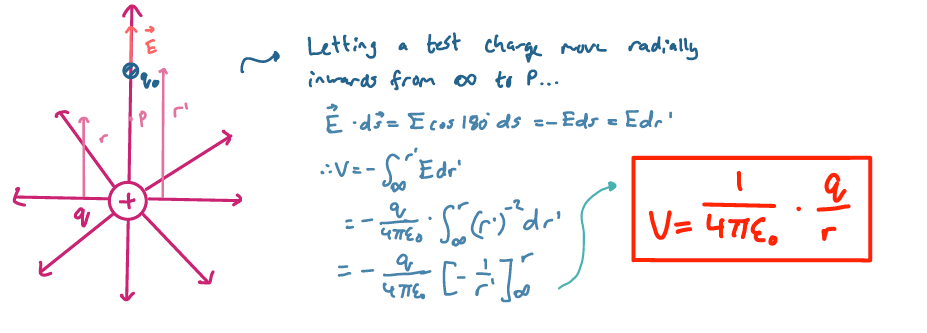 E⃗
q₀
P
r
r'
+
q
Letting a test charge move radially
inwards from ∞ to P...
E⃗ · ds⃗ = E cos 180° ds = -Eds = Edr'
∴V = -∫_∞^r' Edr'
= - q/4πε₀ · ∫_∞^r (r')⁻² dr'
= - q/4πε₀ [-1/r']_∞^r
V = 1/4πε₀ · q/r